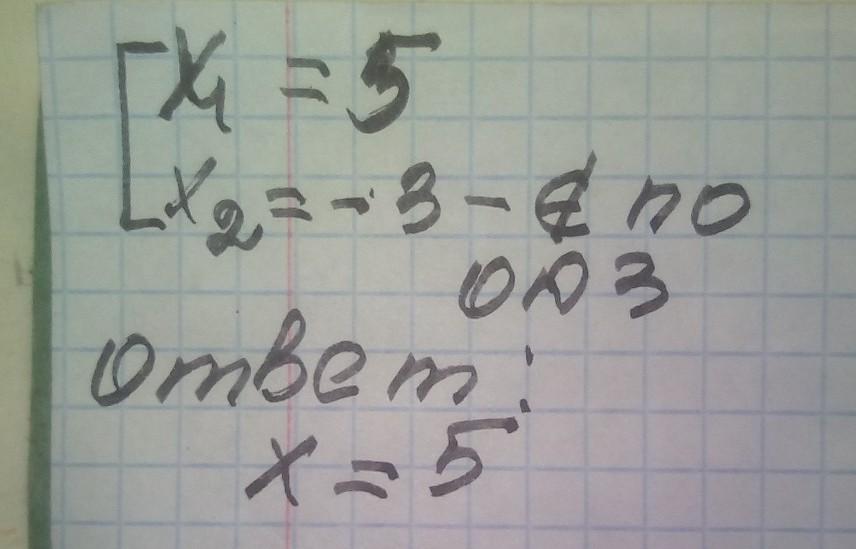 [ x₁ = 5
x₂ = -3 - ∉ по
ОДЗ
Ответ:
x = 5